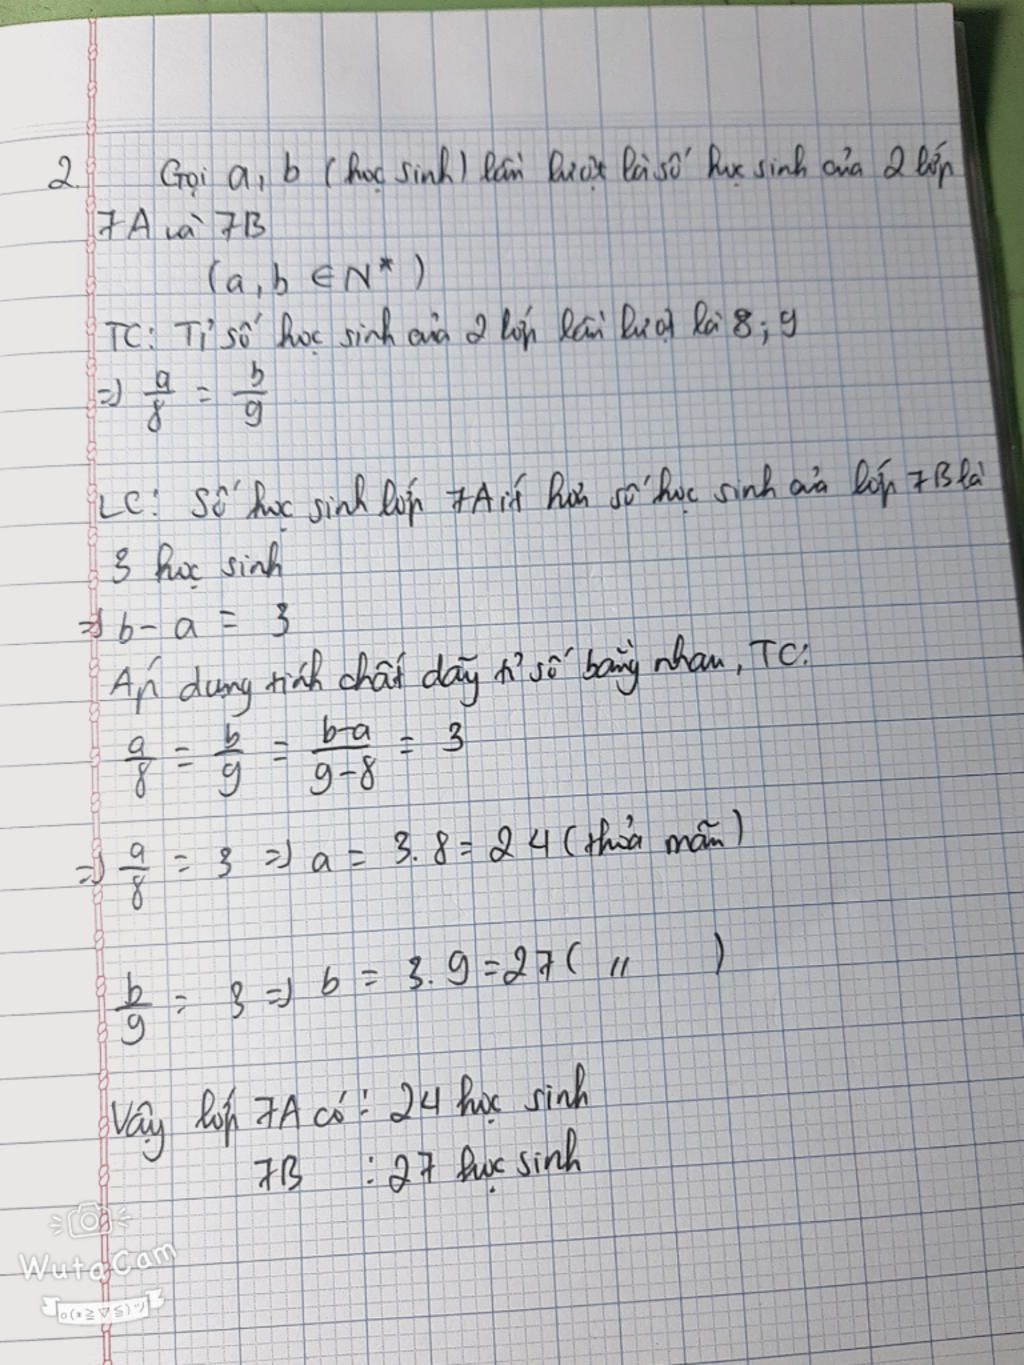 2. Gọi a, b (học sinh) lần lượt là số học sinh của 2 lớp
7A và 7B
(a, b ∈ N*)
TC: Tỉ số học sinh của 2 lớp lần lượt là 8; 9
=> a/8 = b/9
LC: Số học sinh lớp 7A ít hơn số học sinh của lớp 7B là
3 học sinh
=> b - a = 3
Áp dụng tính chất dãy tỉ số bằng nhau, TC:
a/8 = b/9 = b-a/9-8 = 3
=> a/8 = 3 => a = 3.8 = 24 (thỏa mãn)
b/9 = 3 => b = 3.9 = 27 ( " )
Vậy lớp 7A có: 24 học sinh
7B : 27 học sinh
WutaCam
o(*≧▽≦)ツ